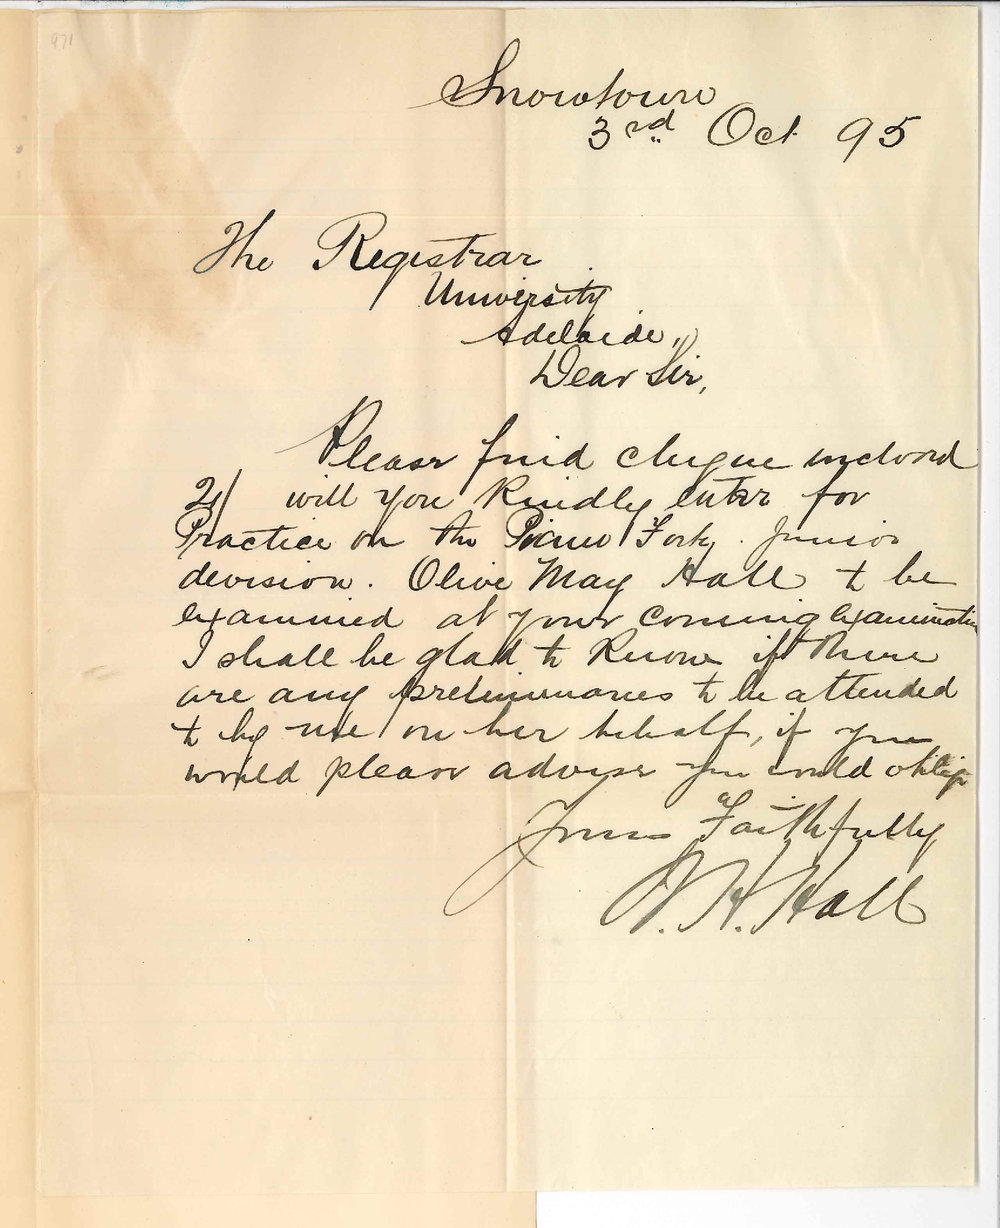 971
Snowtown
3rd Oct 95
The Registrar
University
Adelaide,
Dear Sir,
Please find cheque inclosed
21/ will you Kindly enter for
Practice on the Piano Forte. Junior
devision. Olive May Hall to be
examined at your coming Examination
I shall be glad to Know if there
are any prelimenaries to be attended
to by me on her behalf, if you
would please advise you would oblige
Yours Faithfully
H. Hall